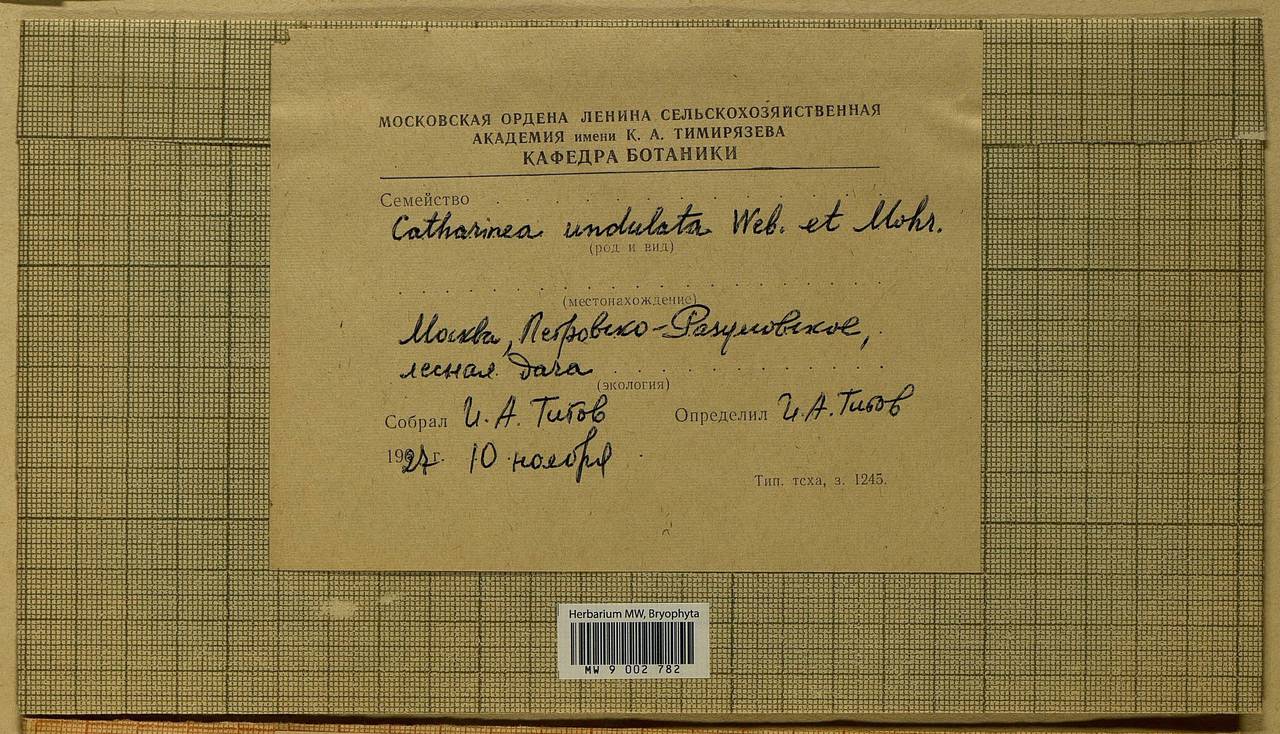 МОСКОВСКАЯ ОРДЕНА ЛЕНИНА СЕЛЬСКОХОЗЯЙСТВЕННАЯ
АКАДЕМИЯ имени К. А. ТИМИРЯЗЕВА
КАФЕДРА БОТАНИКИ
Семейство
Catharinea undulata Web. et Mohr.
(род и вид)
(местонахождение)
Москва, Петровско-Разумовское,
лесная дача
(экология)
Собрал И. А. Титов Определил И. А. Титов
1927 г. 10 ноября
Тип. тсха, з. 1245.
Herbarium MW, Bryophyta
MW 9 002 782